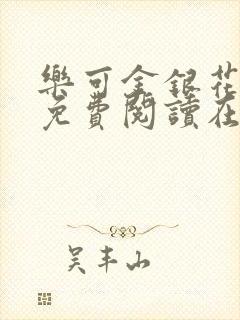 樂可金銀花
免費閱讀在
吴丰山